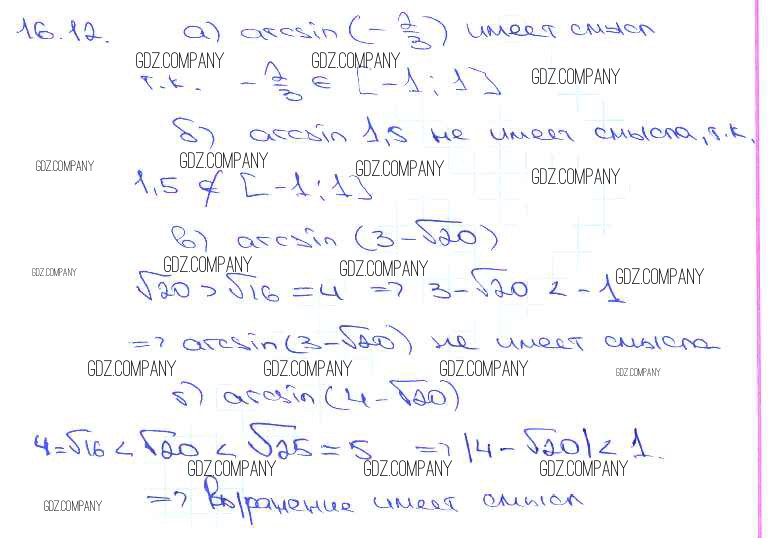 16.12. а) arcsin (-2/3) имеет смысл
GDZ.COMPANY GDZ.COMPANY
т.к. -2/3 ∈ [-1; 1] GDZ.COMPANY
б) arcsin 1,5 не имеет смысла, т.к.
GDZ.COMPANY GDZ.COMPANY GDZ.COMPANY GDZ.COMPANY
1,5 ∉ [-1; 1]
в) arcsin (3-√20)
GDZ.COMPANY GDZ.COMPANY GDZ.COMPANY GDZ.COMPANY
√20 > √16 = 4 => 3-√20 < -1
=> arcsin(3-√20) не имеет смысла
GDZ.COMPANY GDZ.COMPANY GDZ.COMPANY GDZ.COMPANY
г) arcsin(4-√20)
4=√16 < √20 < √25 = 5 => |4-√20| < 1.
GDZ.COMPANY GDZ.COMPANY GDZ.COMPANY
=> Выражение имеет смысл
GDZ.COMPANY